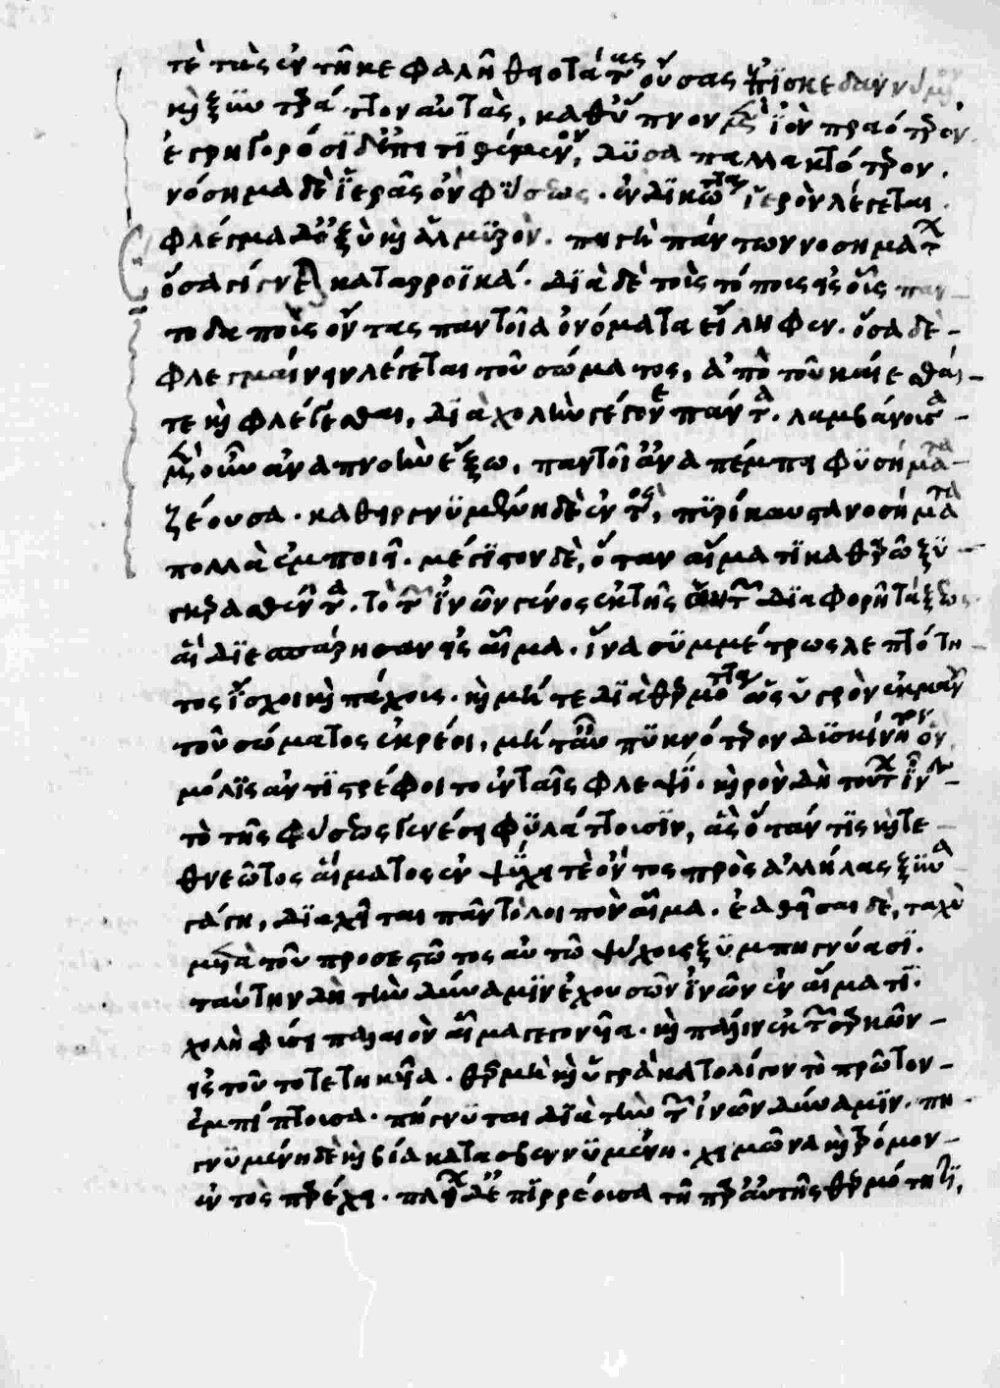 τὲ τὰς ἐν τῆ κεφαλῆ θειοτάτας οὔσας ἐπϊσκεδαννύμενον
κὶ ξϋνταράττον αὐτὰς, καθ ὕπνον μὲν ἰὸν πραότερον.
ἐγρηγορόσϊ δ' ἐπιτιθέμενον, δϋσαπαλλακτότερον.
νόσημα δὲ ἱερᾶς ὂν φύσεως. ἐνδϊκώτατα ἱερὸν λέγεται.
φλέγμα δ' ὀξὺ κὶ ἁλμϋρὸν. πηγὴ πάντων νοσημάτων
ὅσα γίγνε καταρροϊκά. δϊὰ δὲ τοὺς τόπους εἰς οὓς παν-
τοδαποὺς ὄντας παντοῖα ὀνόματα εἴληφεν. ὅσα δὲ-
φλεγμαίνειν λέγεται τοῦ σώματος, ἀπὸ τοῦ κάιεσθάι-
τε κὶ φλέγεσθαι, δϊὰ χολὴν γέγονε πάντα. λαμβάνουσα-
μὲν οὖν ἀναπνοὴν ἔξω, παντοῖ ἀναπέμπει φϋσήματα-
ζέουσα. καθειργνϋμένη δὲ ἐντὸς, πϋρίκαυστα νοσήματα
πολλὰ ἐμποιεῖ. μέγϊστον δὲ, ὅταν αἵματϊ καθαρῶ ξϋ-
γκερασθέντα. τὸ τῶν ἰνῶν γένος ἐκ τῆς αὐτῶν δϊαφορῆ τάξεως.
αἳ δϊεσπάρησαν εἰς αἷμα. ἵνα σϋμμέτρως λεπτότη-
τος ἴσχοι κὶ πάχους. κὶ μήτε δϊὰ θερμότητα ὡς ὑγρὸν ἐκ μανοῦ
τοῦ σώματος ἐκρέοι, μήτ' ἂν πϋκνότερον δϊσκίνητον ὂν,
μόλϊς ἀντϊστρέφοιτο ἐν ταῖς φλεψΐ. καιρὸν δὴ τούτων ἶνες-
τὸ τῆς φύσεως γενέσει φϋλάττουσϊν, ἃς ὅταν τϊς κὶ τε-
θνεῶτος αἵματος ἐν ψύξει τὲ ὄντος πρὸς ἀλλήλας ξϋνα
γάγη, δϊαχεῖται πᾶν τὸ λοιπὸν αἷμα. ἐαθεῖσαι δὲ, ταχὺ
μετὰ τοῦ προσεστῶτος αὐτῶ ψύχους ξϋμπηγνύασϊ.
ταύτην δὴ τὴν δύναμϊν ἐχουσῶν ἰνῶν ἐν αἵματϊ.
χολὴ φύσει παλαιὸν αἷμα γεγονυῖα. κὶ πάλιν ἐκ τῶν σαρκῶν-
εἰς τοῦτο τετηκυῖα. θερμὴ κὶ ὑγρὰ κατ' ὀλίγον τὸ πρῶτον-
ἐμπίπτουσα. πήγνϋται δϊὰ τὴν τῶν ἰνῶν δύναμϊν. πη-
γνϋμένη δὲ κὶ βία κατασβεννϋμένη. χειμῶνα κὶ τρόμον-
ἐντὸς παρέχει. πλείων δ' ἐπϊρρέουσα τῆ παρ' αὐτῆς θερμότητϊ,